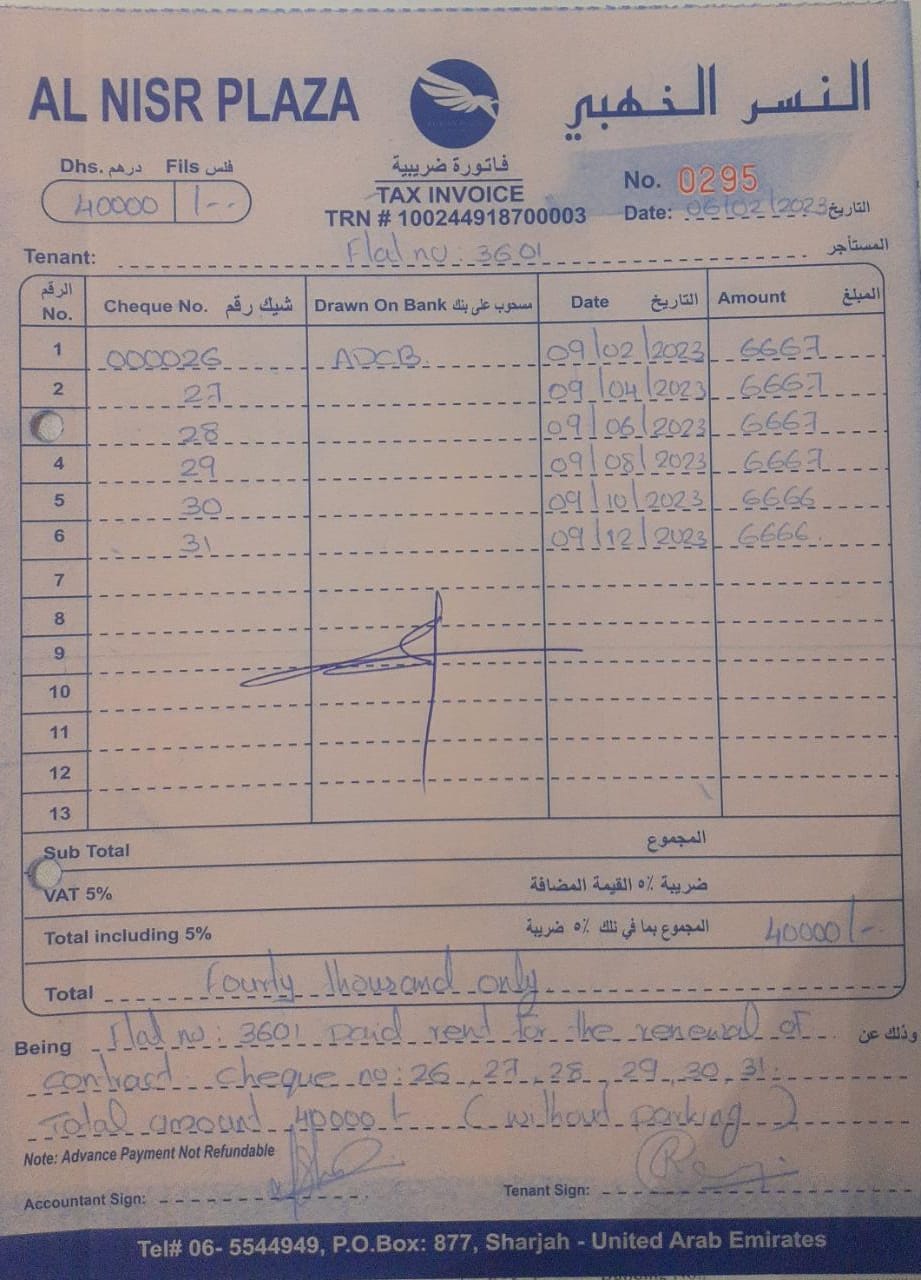 AL NISR PLAZA
النسر الذهبي
Dhs. درهم Fils فلس
40000 /--
فاتورة ضريبية
TAX INVOICE
TRN # 100244918700003
No. 0295
Date: 06/02/2023 التاريخ
Tenant: Flat no: 3601 المستأجر
الرقم No. Cheque No. شيك رقم Drawn On Bank مسحوب على بنك Date التاريخ Amount المبلغ
1 000026 ADCB. 09/02/2023 6667
2 27 09/04/2023 6667
28 09/06/2023 6667
4 29 09/08/2023 6667
5 30 09/10/2023 6666
6 31 09/12/2023 6666
7
8
9
10
11
12
13
Sub Total المجموع
VAT 5% ضريبة ٥٪ القيمة المضافة
Total including 5% المجموع بما في ذلك ٥٪ ضريبة 40000/-
Total Fourty thousand only
Being Flat no: 3601 paid rent for the renewal of وذلك عن
contract cheque no: 26, 27, 28, 29, 30, 31.
Total amount 40000/- (without parking)
Note: Advance Payment Not Refundable
Accountant Sign: Tenant Sign:
Tel# 06- 5544949, P.O.Box: 877, Sharjah - United Arab Emirates